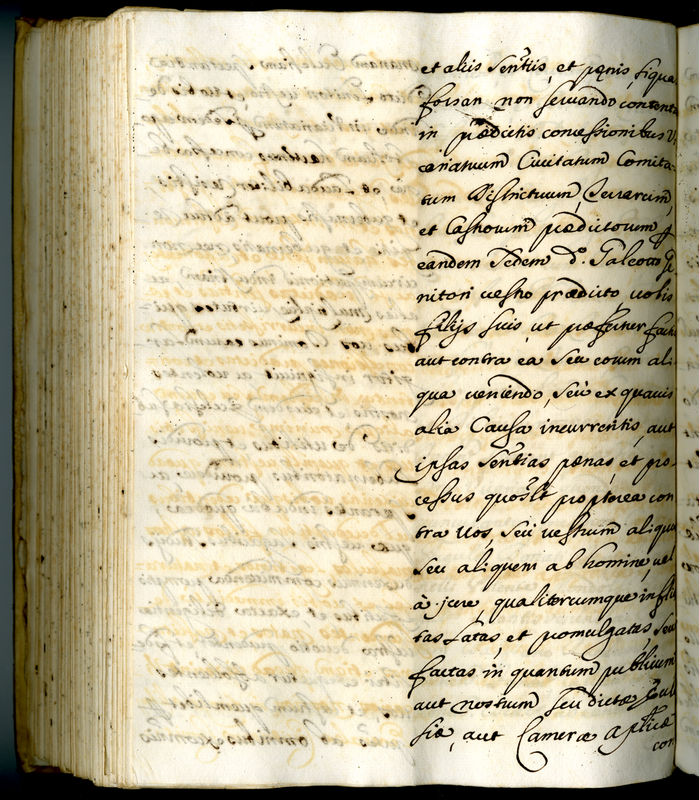 et alijs sen̄tijs, et pęnis, siqua
forsan non servando contenta
in prædictis concessionibus Vi
cariatuum Civitatum Comita-
tum Districtuum, Terrarum,
et Castrorum prædictorum
eandem Sedem d.º Galeotto Ge
nitori vestro prædicto, vobis
filijs suis, ut præfertur factis
aut contra ea seu eorum ali
qua veniendo, seù ex quavis
alia Causa incurrentis, aut
ipsas sen̄tias pænas, et pro
cessus quosl̄t propterea con
tra Vos, seù vestrum aliquos
seu aliquem ab homine, vel
à jure, qualitercumque inflic
tas Latas, et promulgatas, seu
factas in quantum publicum
aut nostrum seu dictæ Eccle
siæ, aut Cameræ Aplicæ
con